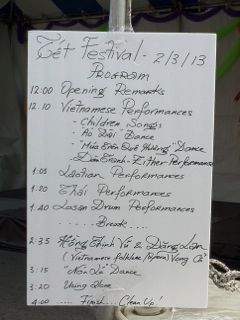 Tết Festival - 2/3/13
PROGRAM
12:00 Opening Remarks
12:10 Vietnamese Performances
- Children Songs
- "Áo Dài" Dance
- "Múa Trên Quê Hương" Dance
- Đàn Tranh - Zither Performance
1:05 Laotian Performances
1:20 Thai Performances
1:40 Lasan Drum Performances
Break
2:35 Hồng Thinh Vô & Đăng Lan
(Vietnamese folklore Vọng Cổ)
3:15 "Nón Lá" Dance
3:20 Dance
4:00 Finish... Clean Up!